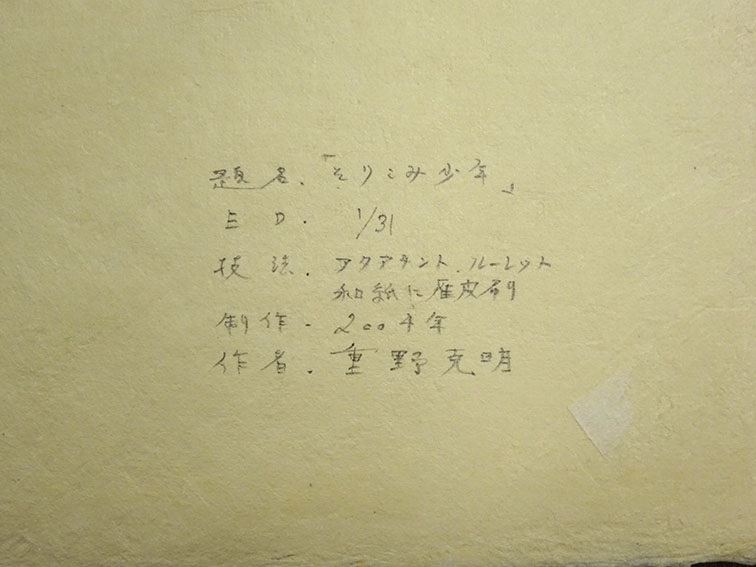 題名.「そりこみ少年」
ED. 1/31
技法. アクアチント.ルーレット
和紙に雁皮刷り
制作. 2004年
作者. 重野克明